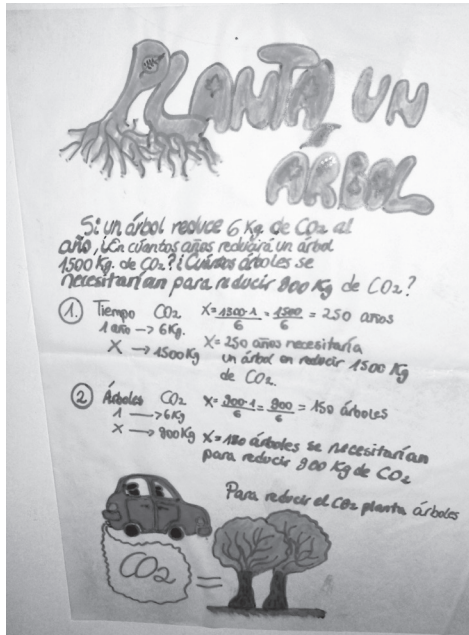 PLANTA UN
ÁRBOL
Si un árbol reduce 6 Kg. de CO2 al
año, ¿En cuantos años reducirá un árbol
1500 Kg. de CO2? ¿Cuántos árboles se
necesitarían para reducir 900 Kg de CO2?
1. Tiempo CO2 X = 1500·1/6 = 1500/6 = 250 años
1 año → 6 Kg.
X → 1500 Kg
X = 250 años necesitaría
un árbol en reducir 1500 Kg
de CO2.
2 Árboles CO2 X = 900·1/6 = 900/6 = 150 árboles
1 → 6 Kg
X → 900 Kg
X = 150 árboles se necesitarían
para reducir 900 Kg de CO2
Para reducir el CO2 planta árboles
CO2 =